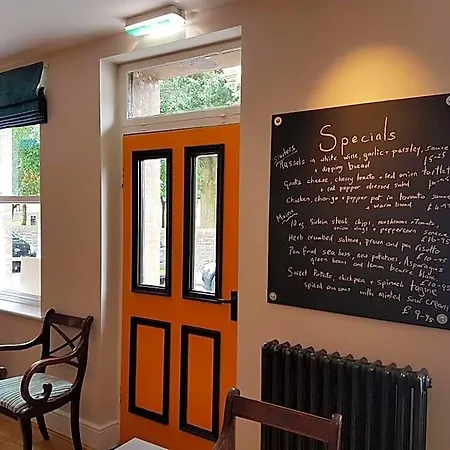 Specials
Starters
Mussels in white wine, garlic + parsley sauce
+ dipping bread
Goats cheese, cherry tomato + red onion tartlet
+ red pepper dressed salad
Chicken, chorizo + pepper pot in tomato
+ warm bread
Mains
10 oz Sirloin steak, chips, mushroom + tomato
onion rings + peppercorn sauce
Herb crumbed salmon, prawn and pea risotto
Pan fried sea bass, new potatoes, Asparagus
green beans and lemon beurre
Sweet Potato, chickpea + spinach tagine
spiced cous cous with minted sour cream
£9.95